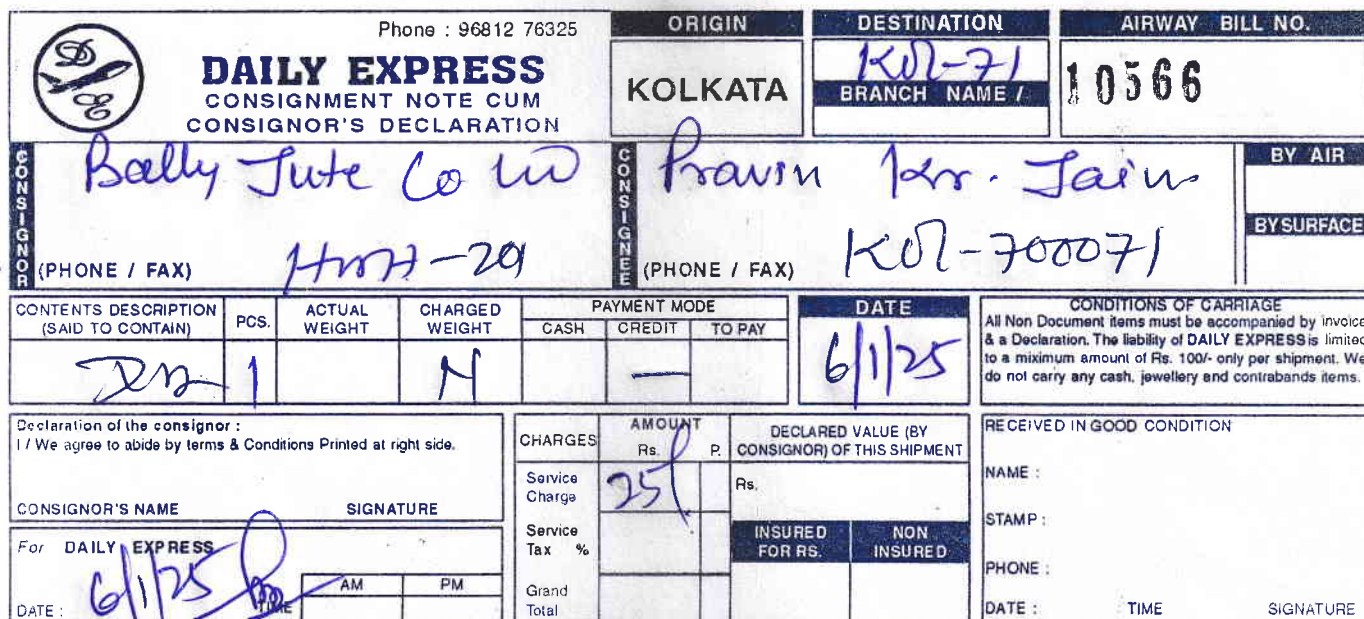 Phone : 96812 76325
DAILY EXPRESS
CONSIGNMENT NOTE CUM
CONSIGNOR'S DECLARATION
ORIGIN
KOLKATA
DESTINATION
Kol-71
BRANCH NAME /
AIRWAY BILL NO.
10566
CONSIGNOR
Bally Jute Co Ltd
(PHONE / FAX)
CONSIGNEE
Pravin Kr. Jain
Kol-700071
(PHONE / FAX)
BY AIR
BY SURFACE
CONTENTS DESCRIPTION
(SAID TO CONTAIN)
PCS.
1
ACTUAL
WEIGHT
CHARGED
WEIGHT
N
PAYMENT MODE
CASH CREDIT TO PAY
—
DATE
6/1/25
CONDITIONS OF CARRIAGE
All Non Document items must be accompanied by invoice
& a Declaration. The liability of DAILY EXPRESS is limited
to a miximum amount of Rs. 100/- only per shipment. We
do not carry any cash, jewellery and contrabands items.
Declaration of the consignor :
I / We agree to abide by terms & Conditions Printed at right side.
CONSIGNOR'S NAME SIGNATURE
For DAILY EXPRESS
6/1/25
DATE : TIME
AM PM
CHARGES
AMOUNT
Rs. P.
Service
Charge
25/
Service
Tax %
Grand
Total
DECLARED VALUE (BY
CONSIGNOR) OF THIS SHIPMENT
Rs.
INSURED
FOR RS.
NON
INSURED
RECEIVED IN GOOD CONDITION
NAME :
STAMP :
PHONE :
DATE : TIME SIGNATURE